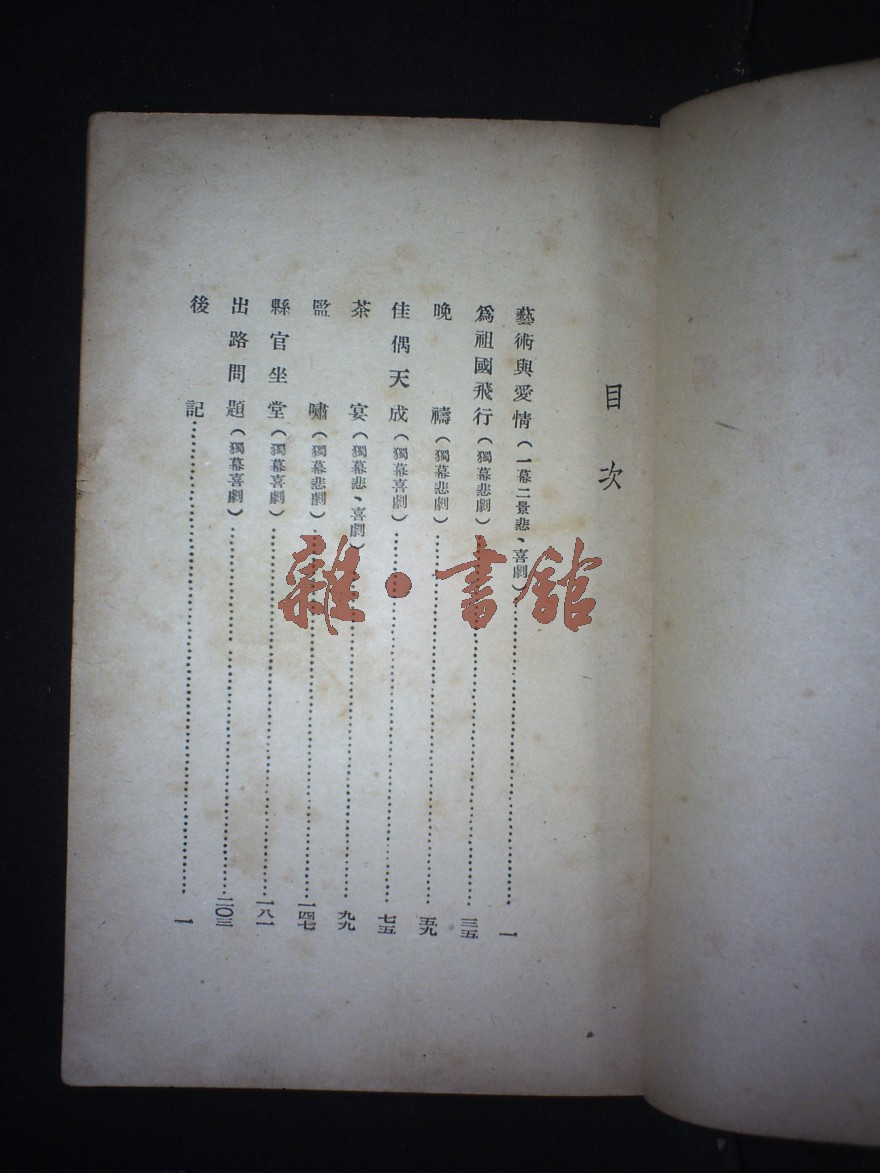 目次
藝術與愛情（一幕二景悲、喜劇）………一
爲祖國飛行（獨幕悲劇）………三五
晚禱（獨幕悲劇）………五九
佳偶天成（獨幕喜劇）………七五
茶宴（獨幕悲、喜劇）………九九
監嘯（獨幕悲劇）………一四七
縣官坐堂（獨幕喜劇）………一八一
出路問題（獨幕喜劇）………二〇三
後記………一
雜·書館